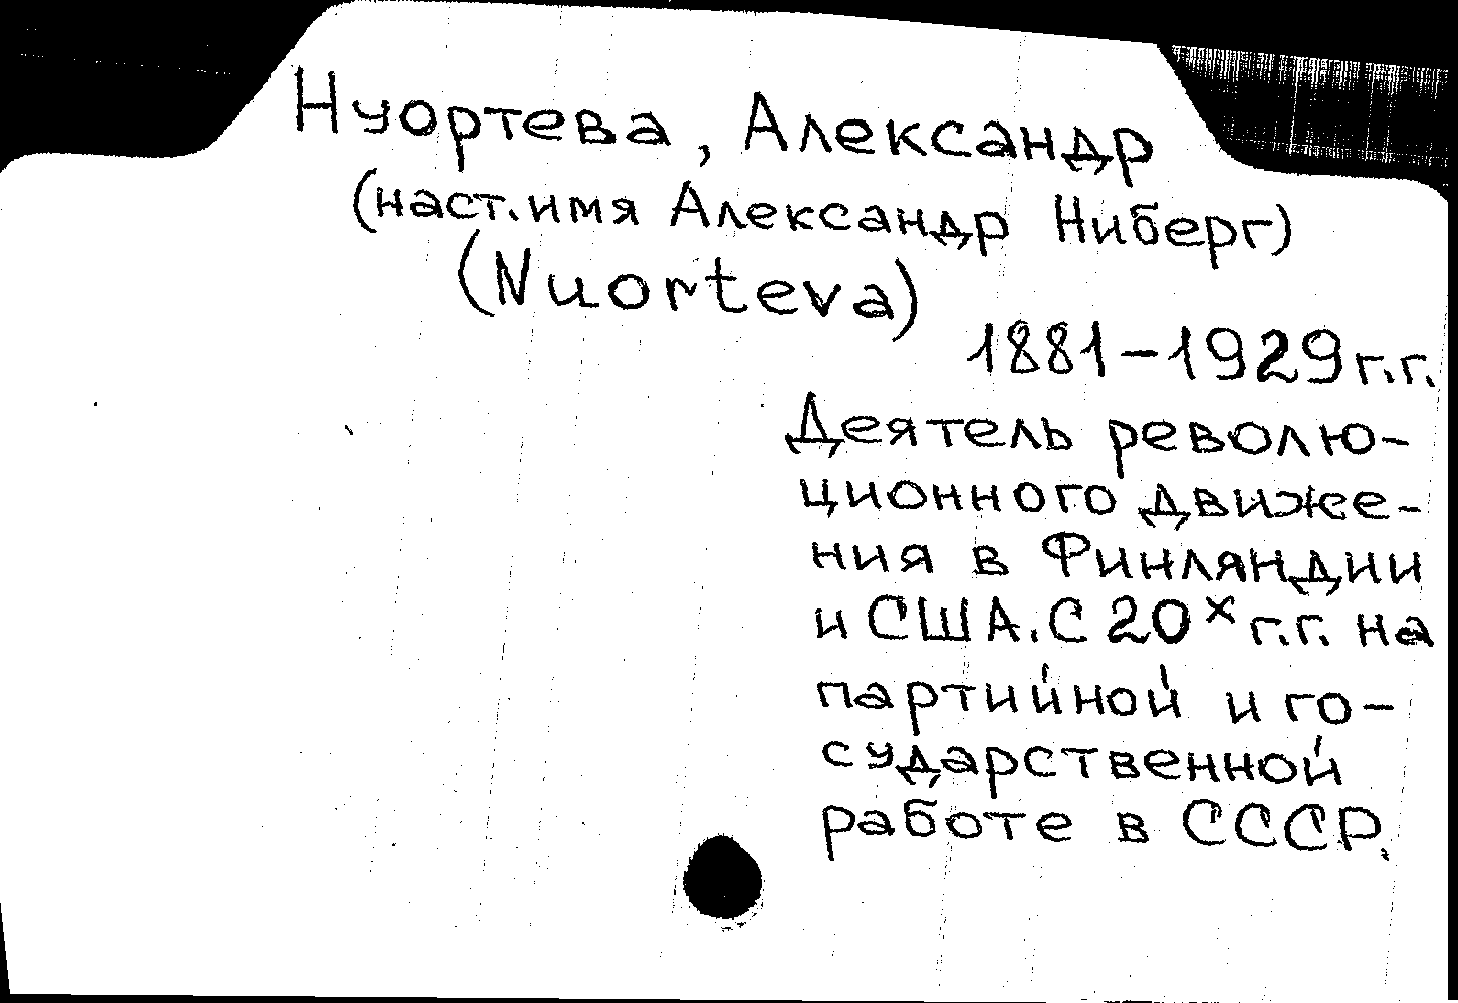 Нуортева, Александр
(наст.имя Александр Ниберг)
(Nuorteva)
1881-1929г.г.
Деятель револю-
ционного движе-
ния в Финляндии
и США. С 20х г.г. на
партийной и го-
сударственной
работе в СССР.